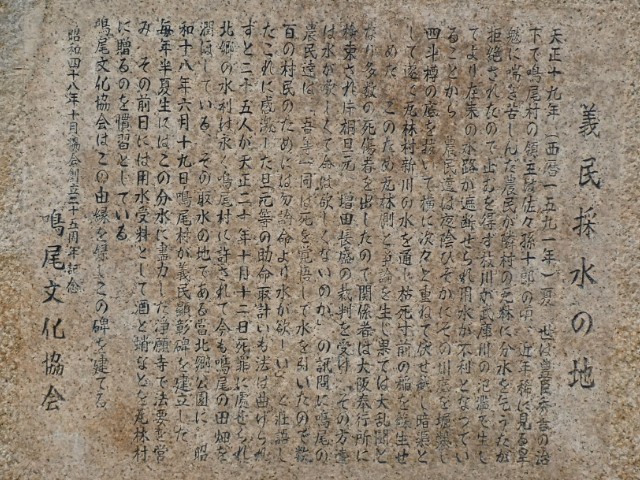 義民採水の地
天正十九年（西暦一五九一年）夏 世は豊臣秀吉の治
下で鳴尾村の領主は佐々孫十郎の頃、近年稀に見る旱
魃に喘ぎ苦しんだ農民が隣村の瓦林に分水を乞うたが
拒絶されたので止むを得ず枝川が武庫川の氾濫で生じ
てより在来の水路が遮断せられ用水が不利となってい
ることから 農民達は夜陰ひそかにその川底を堀鑿し
四斗樽の底を抜いて横に次々と重ねて伏せ込し暗渠と
して遂に瓦林村新川の水を通じ枯死寸前の稲を蘇生せ
しめた このため瓦林側と争論を生じ果ては大乱闘と
なり多数の死傷者を出したので関係者は大阪奉行所に
検束され片桐且元 増田長盛の裁判を受け「その方達
は水が欲しくて命は欲しくないのか」の訊問に鳴尾の
農民達は 吾等一同は死を覚悟して水を引いたので数
百の村民のためには勿論命より水が欲しい」と壮語し
たこれに感激した且元等の助命取計いも法は曲げられ
ずと二十五人が天正二十年十月十二日死罪に処せられ
北郷の水利は永く鳴尾村に許されて今も鳴尾の田畑を
潤している。その取水の地である当北郷公園に 昭
和十八年六月十九日鳴尾村が義民顕彰碑を建立した
毎年半夏生にはこの分水に尽力した浄願寺で法要を営
み、その前日には用水受料として酒と などを瓦林村
に贈るのを慣習としている
鳴尾文化協会はこの由緒を録しこの碑を建てる
昭和四十八年十月協会創立二十五周年記念
鳴尾文化協会